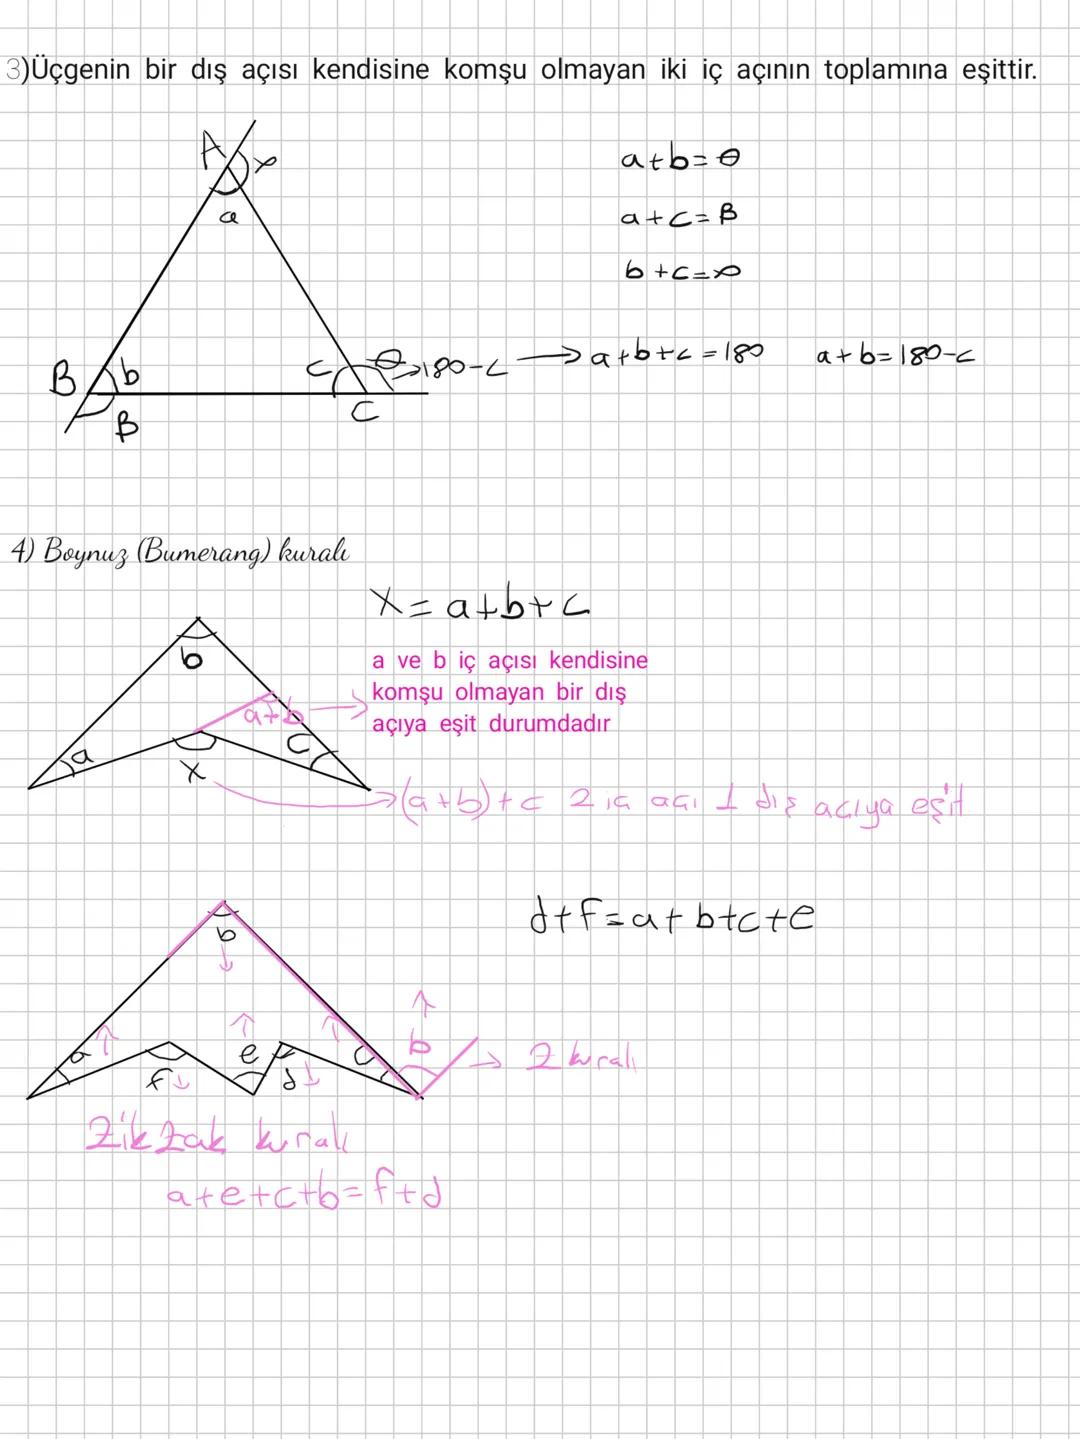 3)Üçgenin bir dış açısı kendisine komşu olmayan iki iç açının toplamına eşittir.
A
∝
a
a+b=θ
a+c=β
b+c=∝
B b
β
c θ →180-c → a+b+c=180 a+b=180-c
C
4) Boynuz (Bumerang) kuralı
x=a+b+c
b
a ve b iç açısı kendisine
komşu olmayan bir dış
açıya eşit durumdadır
a+b →
a
c
x
→(a+b)+c 2 iç açı 1 dış açıya eşit
d+f=a+b+c+e
b
↓
a ↑
f ↓
e ↑
d ↓
c ↑
b ↑
→ Z kuralı
Zikzak kuralı
a+e+c+b=f+d